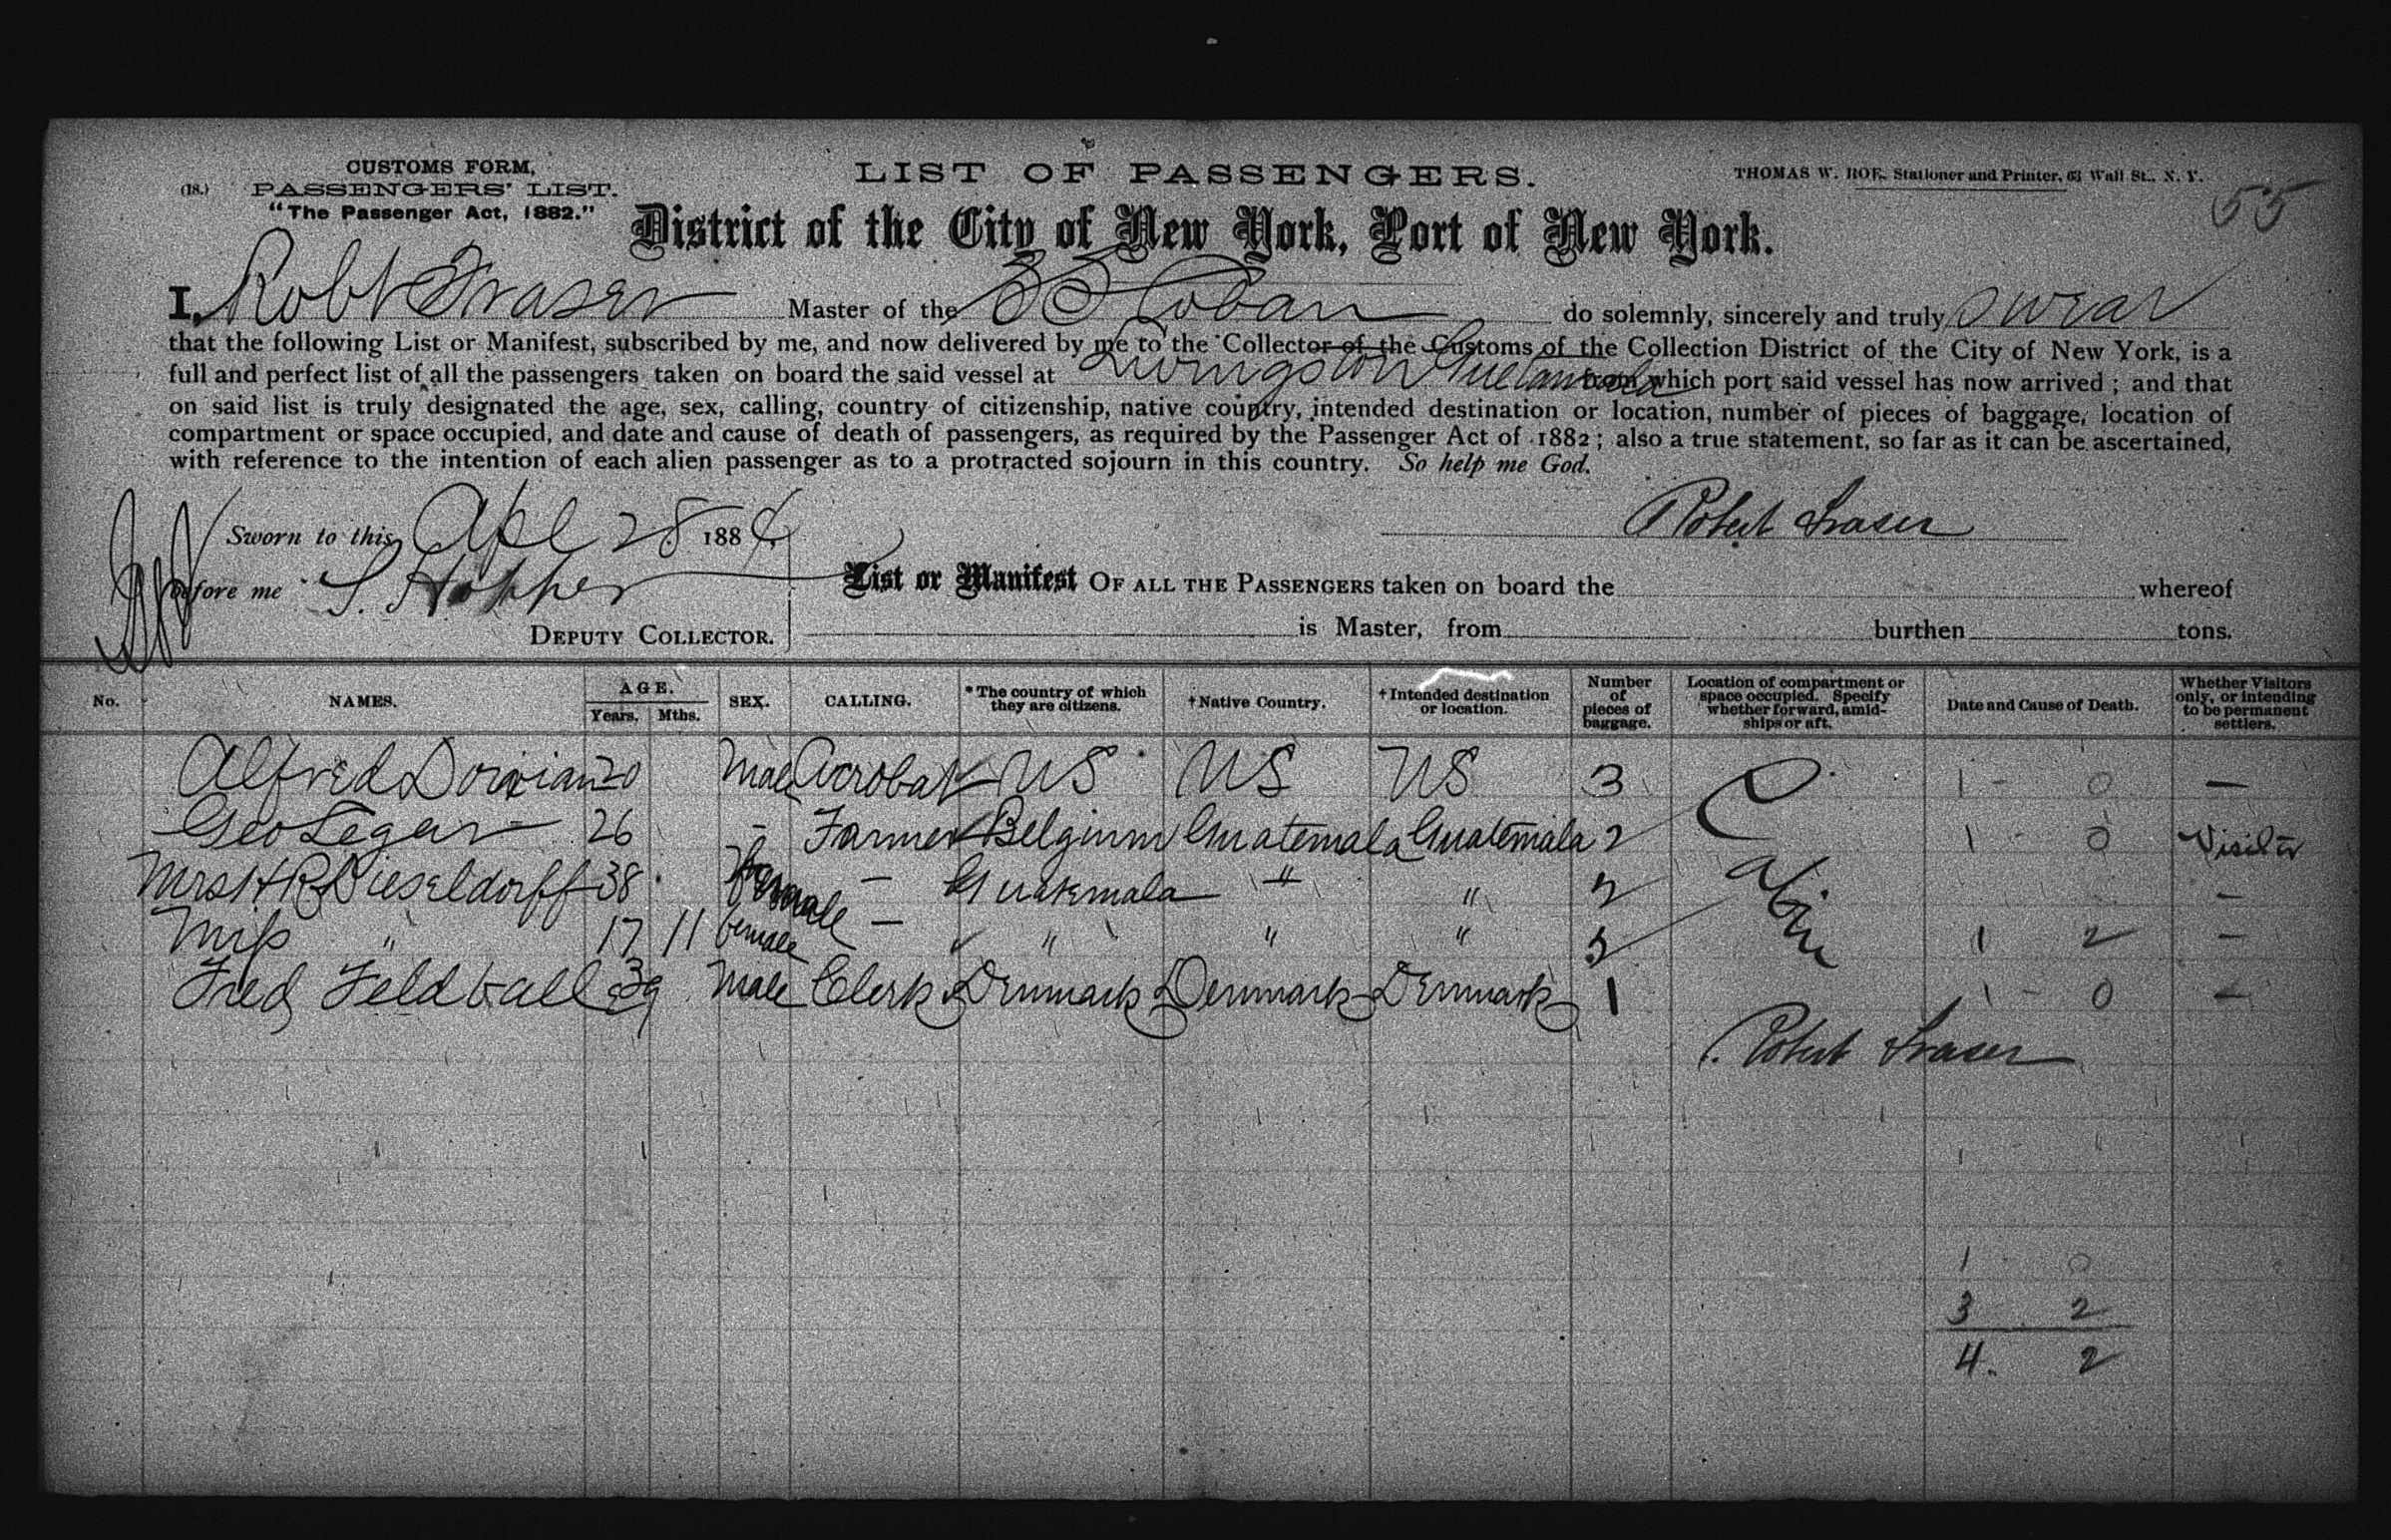 CUSTOMS FORM,
(18.) PASSENGERS' LIST.
"The Passenger Act, 1882."
LIST OF PASSENGERS.
THOMAS W. ROE, Stationer and Printer, 63 Wall St., N. Y.
55
District of the City of New York, Port of New York.
I, Robt Fraser Master of the SS Coban do solemnly, sincerely and truly swear
that the following List or Manifest, subscribed by me, and now delivered by me to the Collector of the Customs of the Collection District of the City of New York, is a
full and perfect list of all the passengers taken on board the said vessel at Livingston from which port said vessel has now arrived; and that
on said list is truly designated the age, sex, calling, country of citizenship, native country, intended destination or location, number of pieces of baggage, location of
compartment or space occupied, and date and cause of death of passengers, as required by the Passenger Act of 1882; also a true statement, so far as it can be ascertained,
with reference to the intention of each alien passenger as to a protracted sojourn in this country. So help me God.
Robert Fraser
Sworn to this Apl 28 1884
before me S. Hopper
DEPUTY COLLECTOR.
List or Manifest OF ALL THE PASSENGERS taken on board the whereof
is Master, from burthen tons.
No. NAMES. AGE. Years. Mths. SEX. CALLING. * The country of which they are citizens. † Native Country. † Intended destination or location. Number of pieces of baggage. Location of compartment or space occupied. Specify whether forward, amidships or aft. Date and Cause of Death. Whether Visitors only, or intending to be permanent settlers.
Alfred 20 Male Acrobat US US US 3 1 - 0 —
Geo Legar 26 - Farmer Belgium Guatemala Guatemala 2 1 - 0 Visitor
Mrs H R Dieseldorff 38 female — Guatemala " " 2 —
Miss " 17 11 female — " " " 2 1 2 —
Fred 39 Male Clerk Denmark Denmark Denmark 1 1 - 0 —
Cabin
Robert Fraser
1 0
3 2
4. 2